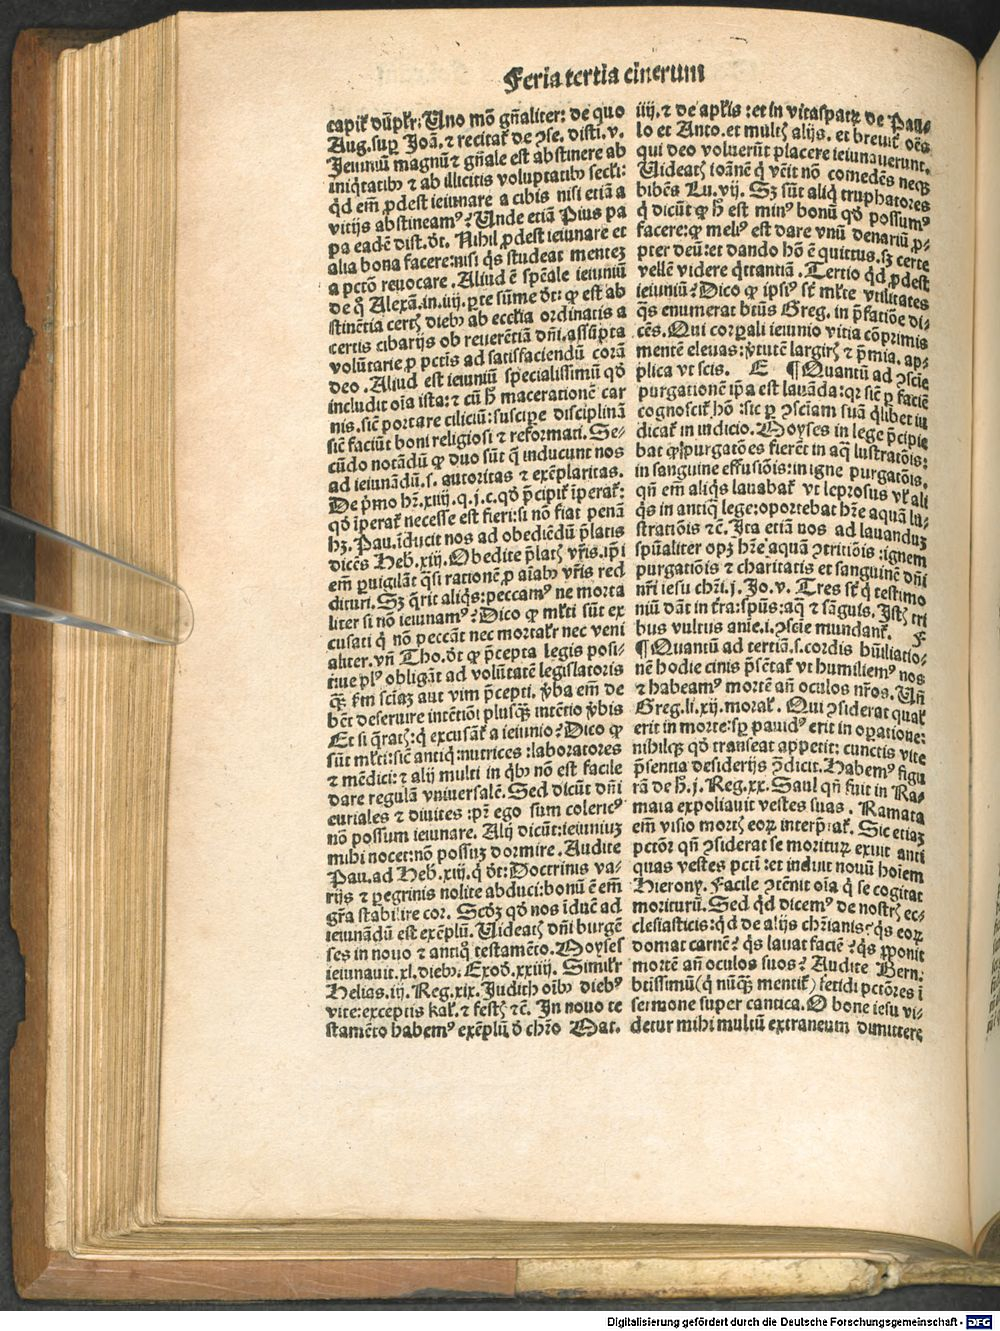 Feria tertia cinerum
capiť dupľr: Uno mō gñaliter: de quo
Aug. suꝑ Joã. ⁊ recitať de ꝯse. disti. v.
Jeiuniũ magnũ ⁊ gñale est abstinere ab
iniqͥtatibꝰ ⁊ ab illicitis voluptatibꝰ secľi:
qͥd em̄ ꝓdest ieiunare a cibis nisi etiã a
vitijs abstineamꝰ? Unde etiã Pius pa
pa eadē dist. ďt. Nihil ꝓdest ieiunare et
alia bona facere: nisi qͥs studeat menteʒ
a pctō reuocare. Aliud ē spēale ieiuniũ
de qͦ Alexã. in. iiij. ꝑte sũme ďt: ꝙ est ab
stinētia certꝭ diebꝰ ab ecclia ordinatis a
certis cibarijs ob reuerētiã dñi. assũpta
volũtarie ꝓ pctis ad satisfaciendũ corã
deo. Aliud est ieiuniũ specialissimũ qď
includit oĩa ista: ⁊ cũ ħ macerationē car
nis. sic̄ portare ciliciũ: suscipe disciplinã
sic̄ faciũt boni religiosi ⁊ reformati. Se-
cũdo notãdũ ꝙ duo sũt q̄ inducunt nos
ad ieiunãdũ. s. autoritas ⁊ exēplaritas.
De pͥmo hr̄. xiiij. q. j. c. qď p̄cipiť ĩperať:
qď ĩperať necesse est fieri: si nō fiat penã
hʒ. Pau. ĩducit nos ad obediēdũ p̄latis
dicēs Heb. xiij. Obedite p̄latꝭ vr̄is. ip̄i
em̄ ꝑuigilãt qͣsi rationē ꝓ aĩabꝰ vr̄is red
dituri. Sʒ q̄rit aliqͥs: peccamꝰ ne morta
liter si nō ieiunamꝰ? Dico ꝙ ml̄ti sũt ex
cusati qͥ nō peccãt nec mortaľr nec veni
aliter. vñ Tho. ďt ꝙ p̄cepta legis posi-
tiue plꝰ obligãt ad volũtatē legislatoris
qͣꝫ fm̄ sciãʒ aut vim p̄cepti. v̄ba em̄ de
bēt deseruire intētiōi plusqͣꝫ intētio v̄bis
Et si q̄ratꝭ: qͥ excusãť a ieiunio? Dico ꝙ
sũt ml̄ti: sic̄ antiqͥ: nutrices: laboratores
⁊ mēdici: ⁊ alij multi in qͥbꝰ nō est facile
dare regulã vniuersalē. Sed dicũt dñi
curiales ⁊ diuites: pr̄ ego sum colericꝰ
nō possum ieiunare. Alij dicũt: ieiuniuʒ
mihi nocet: nō possuʒ dormire. Audite
Pau. ad Heb. xiij. qͥ ďt: Doctrinis va-
rijs ⁊ ꝑegrinis nolite abduci: bonũ ē em̄
gr̄a stabilire cor. Scďʒ qď nos ĩducē ad
ieiunãdũ est exēplũ. Uideatꝭ dñi burgē
ses in nouo ⁊ antiqͦ testamēto. Moyses
ieiunauit. xl. diebꝰ. Exoď. xxiiij. Similr̄
Helias. iij. Reg. xix. Judith oĩbꝰ diebꝰ
vite: exceptis kaľ. ⁊ festꝭ ⁊c̄. In nouo te
stamēto habemꝰ exēplũ ď chr̄o Mat.
iiij. ⁊ de apl̄is: et in vitaspatꝝ de Pau-
lo et Anto. et multꝭ alijs. et breuiť oēs
qui deo voluerũt placere ieiunauerunt.
Uideatꝭ ioãnē qͥ vēit nō comedēs neqꝫ
bibēs Lu. vij. Sʒ sũt aliqͥ truphatores
qͥ dicũt ꝙ ħ est minꝰ bonũ qď possumꝰ
facere: ꝙ meliꝰ est dare vnũ denariũ ꝓ-
pter deũ: et dando hō ē quittus. sʒ certe
vellē videre qͥttantiã. Tertio qͥd ꝓdest
ieiuniũ? Dico ꝙ ipsiꝰ st̄ ml̄te vtilitates
qͣs enumerat btũs Greg. in p̄fatiōe di-
cēs. Qui corꝑali ieiunio vitia cōprimis
mentē eleuas: v̄tutē largirꝭ ⁊ p̄mia. ap-
plica vt scis. E ¶ Quantũ ad ꝯscie
purgationē ip̄a est lauãda: qꝛ sic̄ ꝑ faciē
cognosciť hō: sic ꝑ ꝯsciam suã qͥlibet iu
dicať in iudicio. Moyses in lege p̄cipie
bat ꝙ purgatōes fierēt in aqͣ lustratōis:
in sanguine effusiōis: in igne purgatōis.
qñ em̄ aliqͥs lauabať vt leprosus vľ ali
qͥs in antiqͣ lege: oportebat hr̄e aquã lu-
strationis ⁊c̄. Ita etiã nos ad lauanduʒ
spũaliter opʒ hr̄e aquã ꝯtritiōis: ignem
purgatiōis ⁊ charitatis et sanguinē dñi
nr̄i iesu chr̄i. j. Jo. v. Tres st̄ qͥ testimo
niũ dãt in tr̄a: spũs: aqͣ ⁊ sãguis. Istꝭ tri
bus vultus anie. i. ꝯscie mundanť. F
¶ Quantũ ad tertiã. s. cordis hũiliatio-
nē hodie cinis p̄sētať vt humiliemꝰ nos
⁊ habeamꝰ mortē añ oculos nr̄os. Uñ
Greg. li. xij. moraľ. Qui ꝯsiderat qualꝭ
erit in morte: sꝑ pauidꝰ erit in oꝑatione:
nihilqꝫ qď transeat appetit: cunctis vite
p̄sentia desiderijs ꝯ̄dicit. Habemꝰ figu
rã de ħ. j. Reg. xx. Saul qñ fuit in Ra-
maia expoliauit vestes suas. Ramata
em̄ visio mortꝭ eoꝝ interp̄tať. Sic etiaʒ
pctōr qñ ꝯsiderat se morituꝝ exuit anti
quas vestes pcti: et induit nouũ hoĩem
Hierony. Facile ꝯtēnit oĩa qͥ se cogitat
moriturũ. Sed qͥd dicemꝰ de nostrꝭ ec-
clesiasticis: qͥd de alijs chr̄ianis? qͥs eoꝝ
domat carnē? qͥs lauat faciē? qͥs ꝓponit
mortē añ oculos suos? Audite Bern.
btĩssimũ (qͥ nũqͣꝫ mentiť) fetidi pctōres ĩ
sermone super cantica. O bone iesu vi-
detur mihi multũ extraneum dimittere
Digitalisierung gefördert durch die Deutsche Forschungsgemeinschaft - DFG